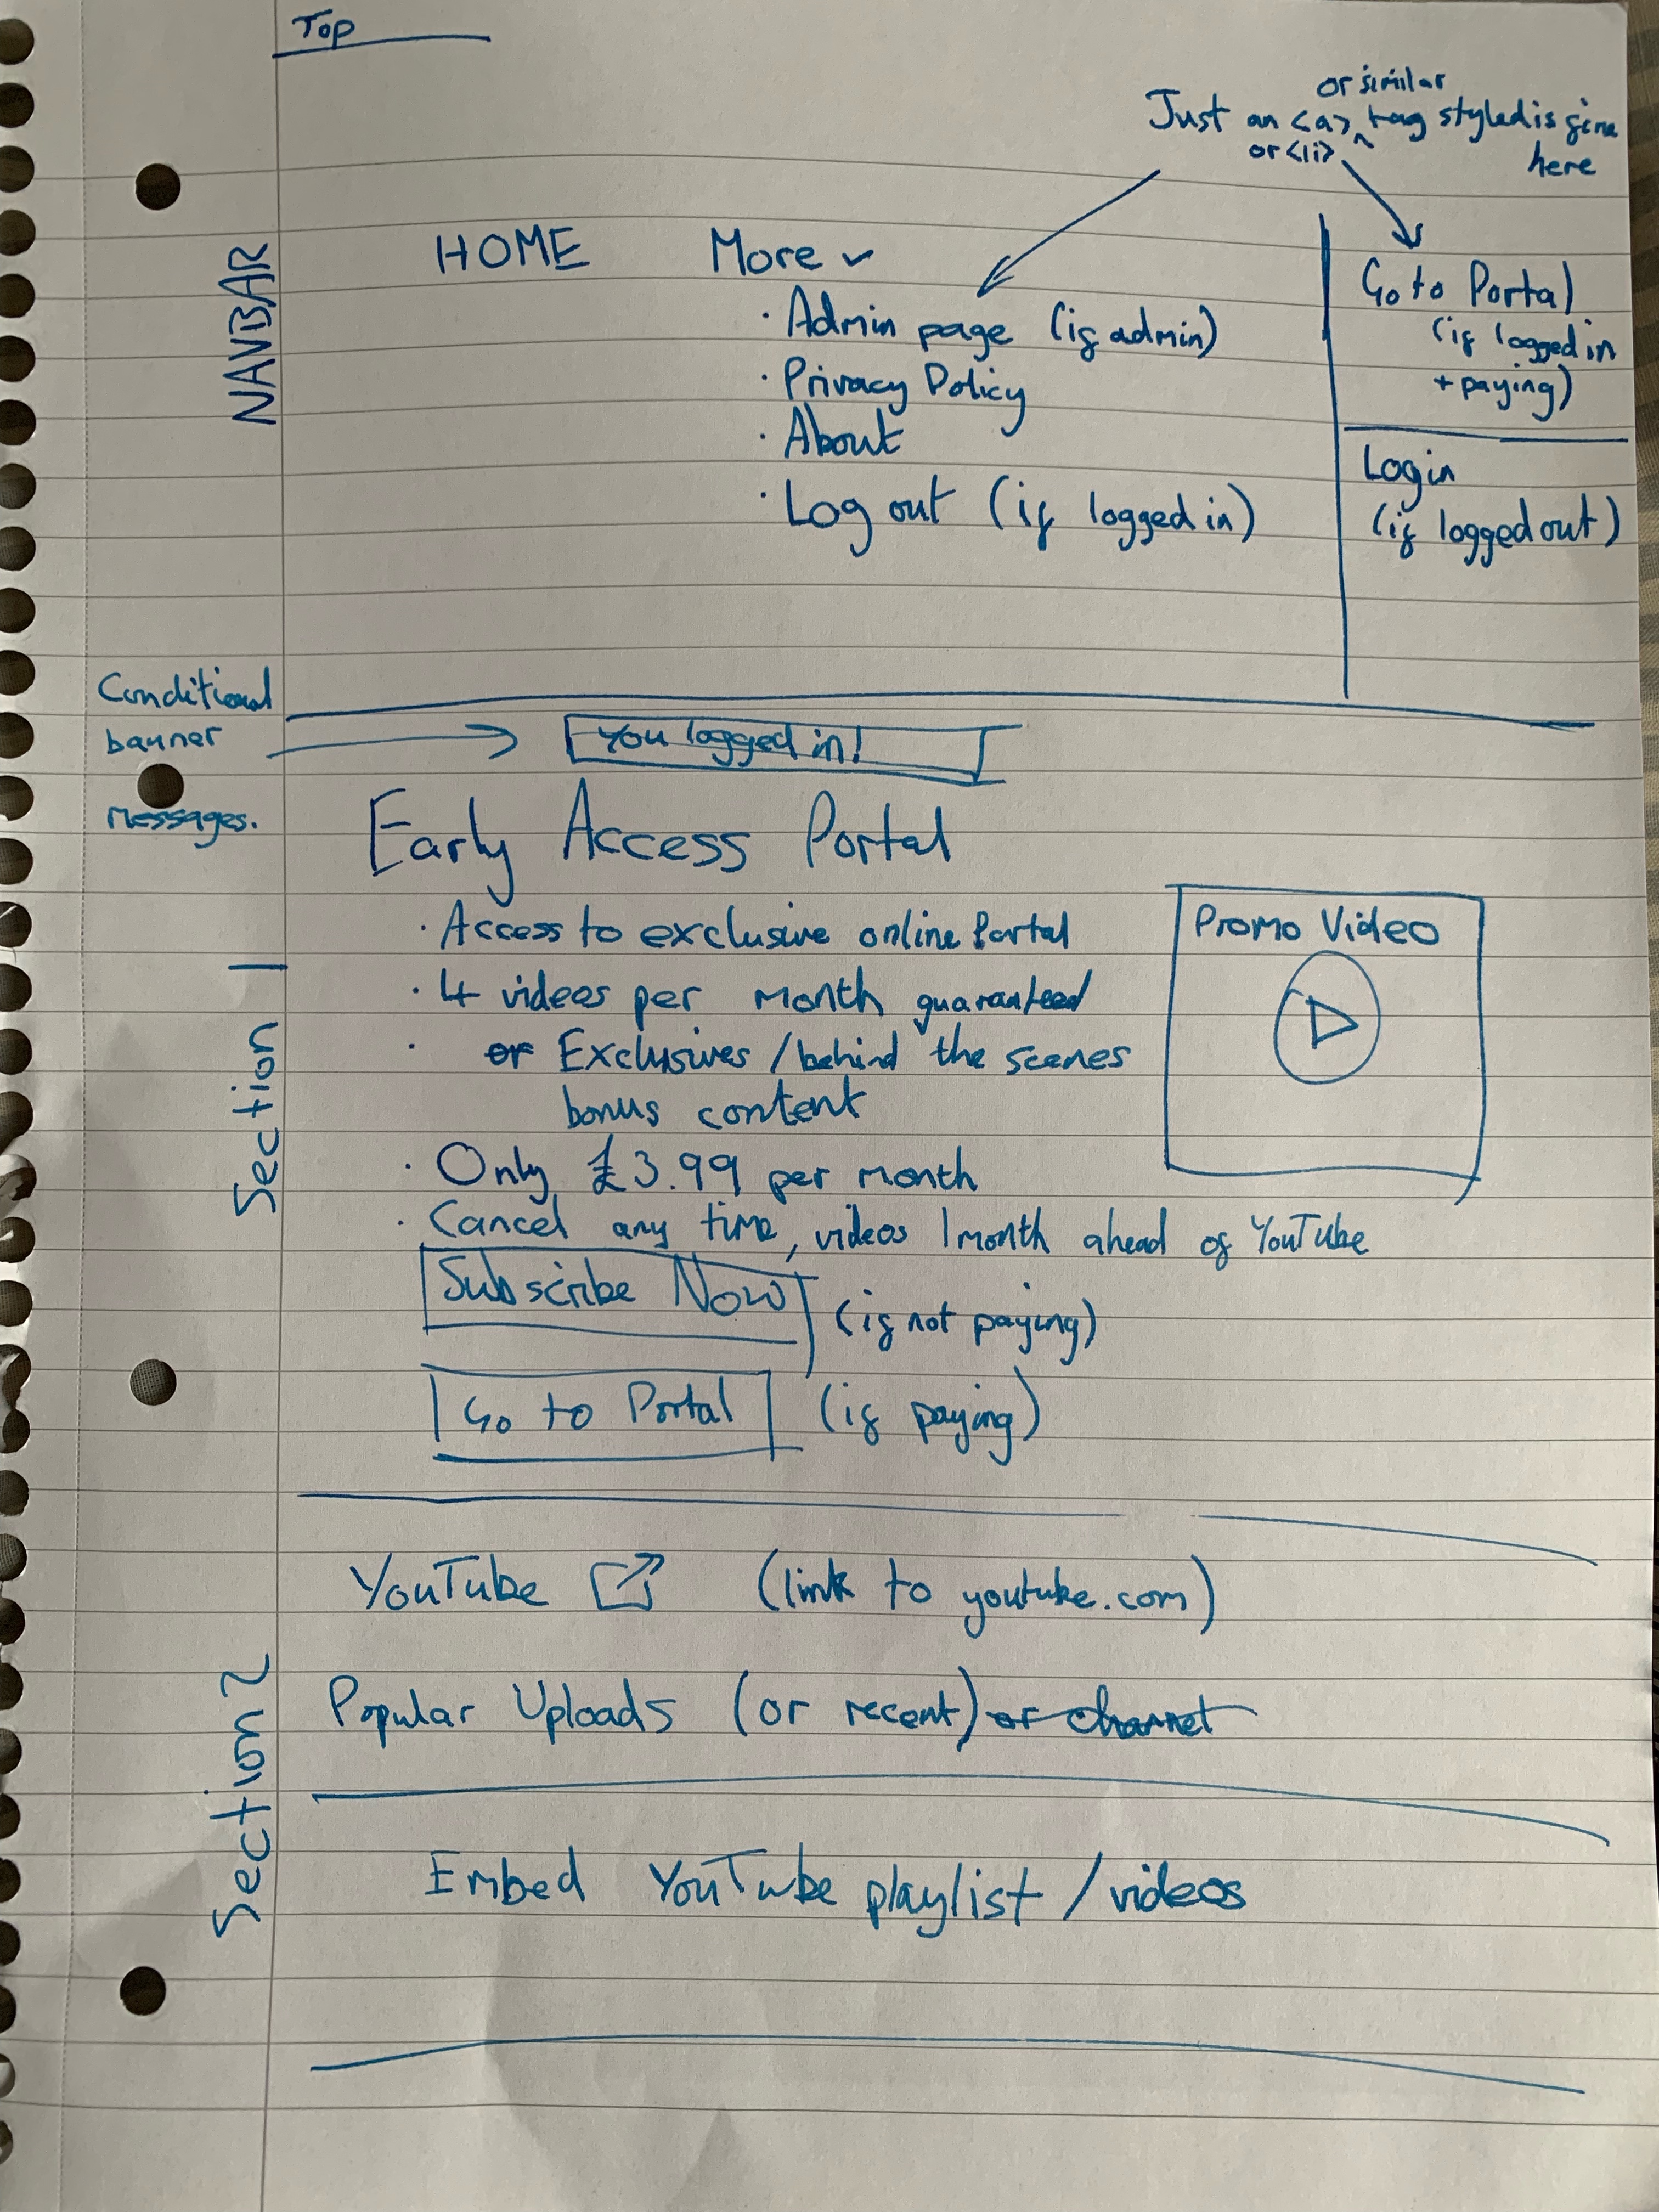 Top
or similar
Just an <a> ^ tag styled is fine
or <li>
here
NAVBAR
HOME
More ⌄
· Admin page (if admin)
· Privacy Policy
· About
· Log out (if logged in)
Go to Portal
(if logged in
+ paying)
Login
(if logged out)
Conditional
banner
Messages.
You logged in!
Early Access Portal
Section 1
· Access to exclusive online Portal
· 4 videos per month guaranteed
· or Exclusives / behind the scenes
bonus content
· Only £3.99 per month
· Cancel any time, videos 1 month ahead of YouTube
Promo Video
Subscribe Now (if not paying)
Go to Portal (if paying)
Section 2
YouTube (link to youtube.com)
Popular Uploads (or recent) or channel
Embed YouTube playlist / videos